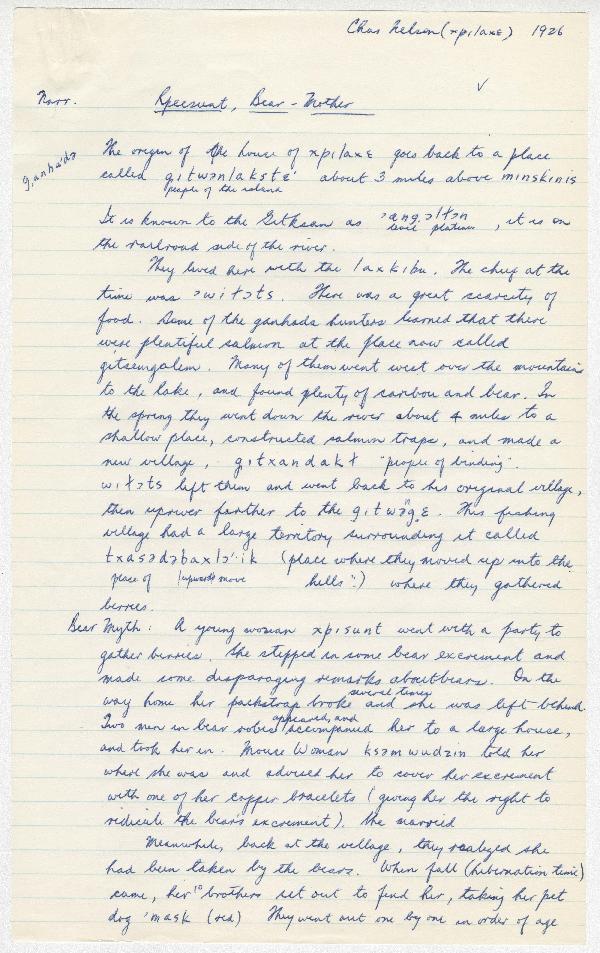 Chas Nelson (xpi/axɛ) 1926
✓
Narr. Rpeesunt, Bear-Mother
The origin of the house of xpi/axɛ goes back to a place
g,anha'dɔ
called g,itwənlakstɛ' about 3 miles above minskinis
people of the island
It is known to the Gitksan as ɔang,ɔltən, it is on
level plateau
the railroad side of the river.
They lived here with the laxkibu. The chief at the
time was ɔwiɫɔts. There was a great scarcity of
food. Some of the ganhada hunters learned that there
were plentiful salmon at the place now called
gitsemgalem. Many of them went west over the mountain
to the lake, and found plenty of caribou and bear. In
the spring they went down the river about 4 miles to a
shallow place, constructed salmon traps, and made a
new village, g,itxandakɫ "people of binding".
wiɫɔts left them and went back to his original village,
then upriver farther to the g,itwəng,ɛ. This fishing
village had a large territory surrounding it called
txasɔdɔbaxlɔ''ik (place where they moved up into the
place of /upwards move hills":) where they gathered
berries.
Bear Myth: A young woman xpisunt went with a party to
gather berries. She stepped in some bear excrement and
made some disparaging remarks about bears. On the
way home her packstrap broke several times and she was left behind.
Two men in bear robes appeared, and accompanied her to a large house,
and took her in. Mouse Woman ksəm wudzin told her
where she was and advised her to cover her excrement
with one of her copper bracelets (giving her the right to
ridicule the bear's excrement). She married
Meanwhile, back at the village, they realized she
had been taken by the bears. When fall (hibernation time)
came, her 10 brothers set out to find her, taking her pet
dog 'mask (red) They went out one by one in order of age